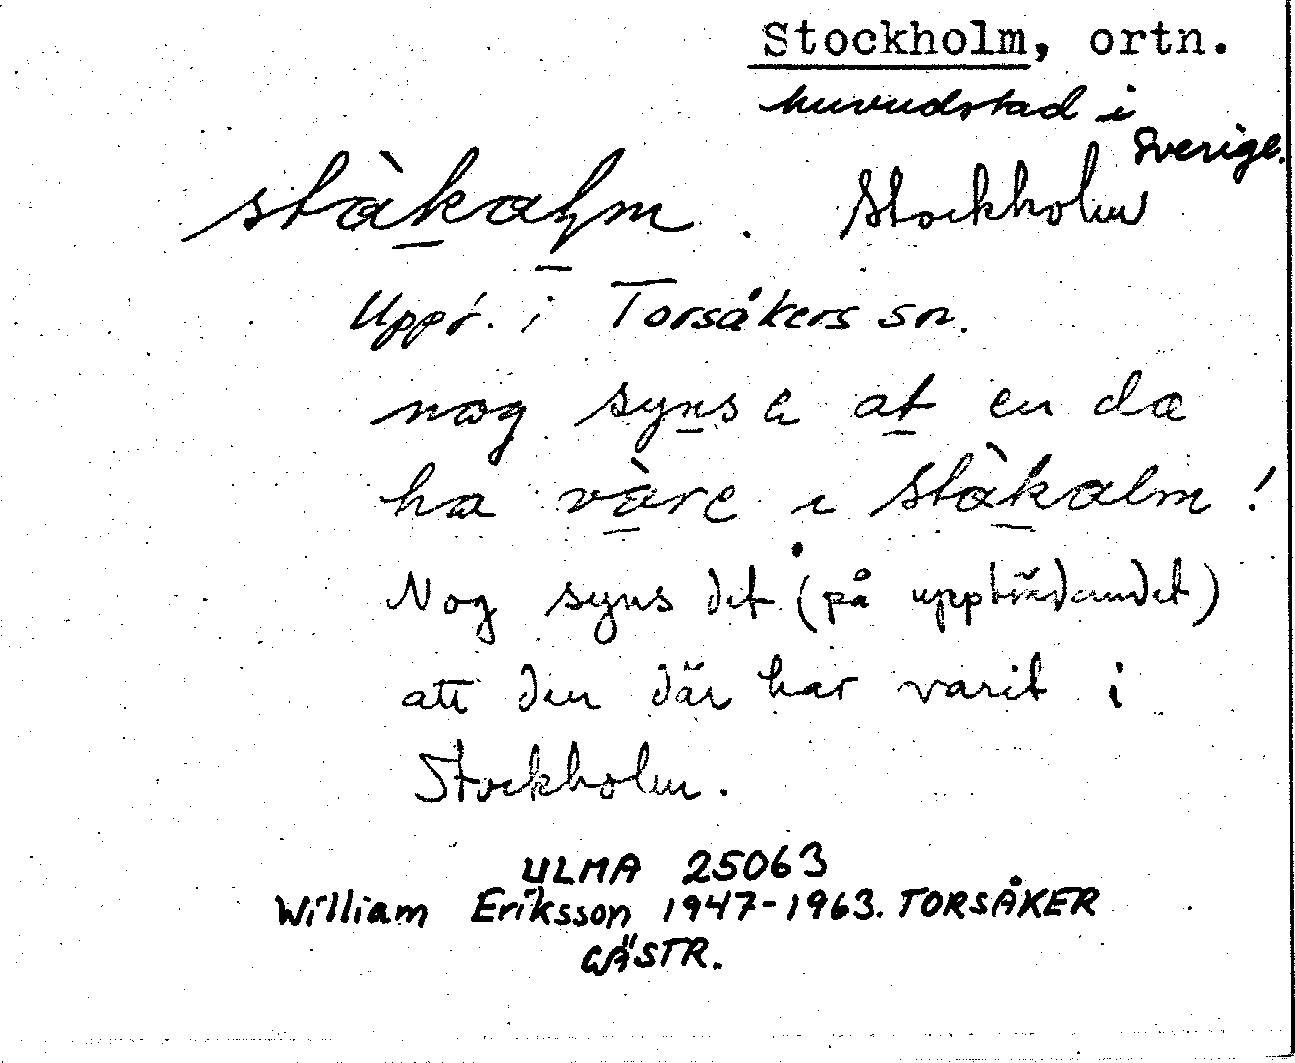 Stockholm, ortn.
huvudstad i
Sverige.
stàkalm. Stockholm
Uppt. i Torsåkers sn.
nog syns e at en da
ha vàre i Stàkalm!
Nog syns det (på uppträdandet)
att den där har varit i
Stockholm.
ULMA 25063
William Eriksson 1947-1963. TORSÅKER
GÄSTR.